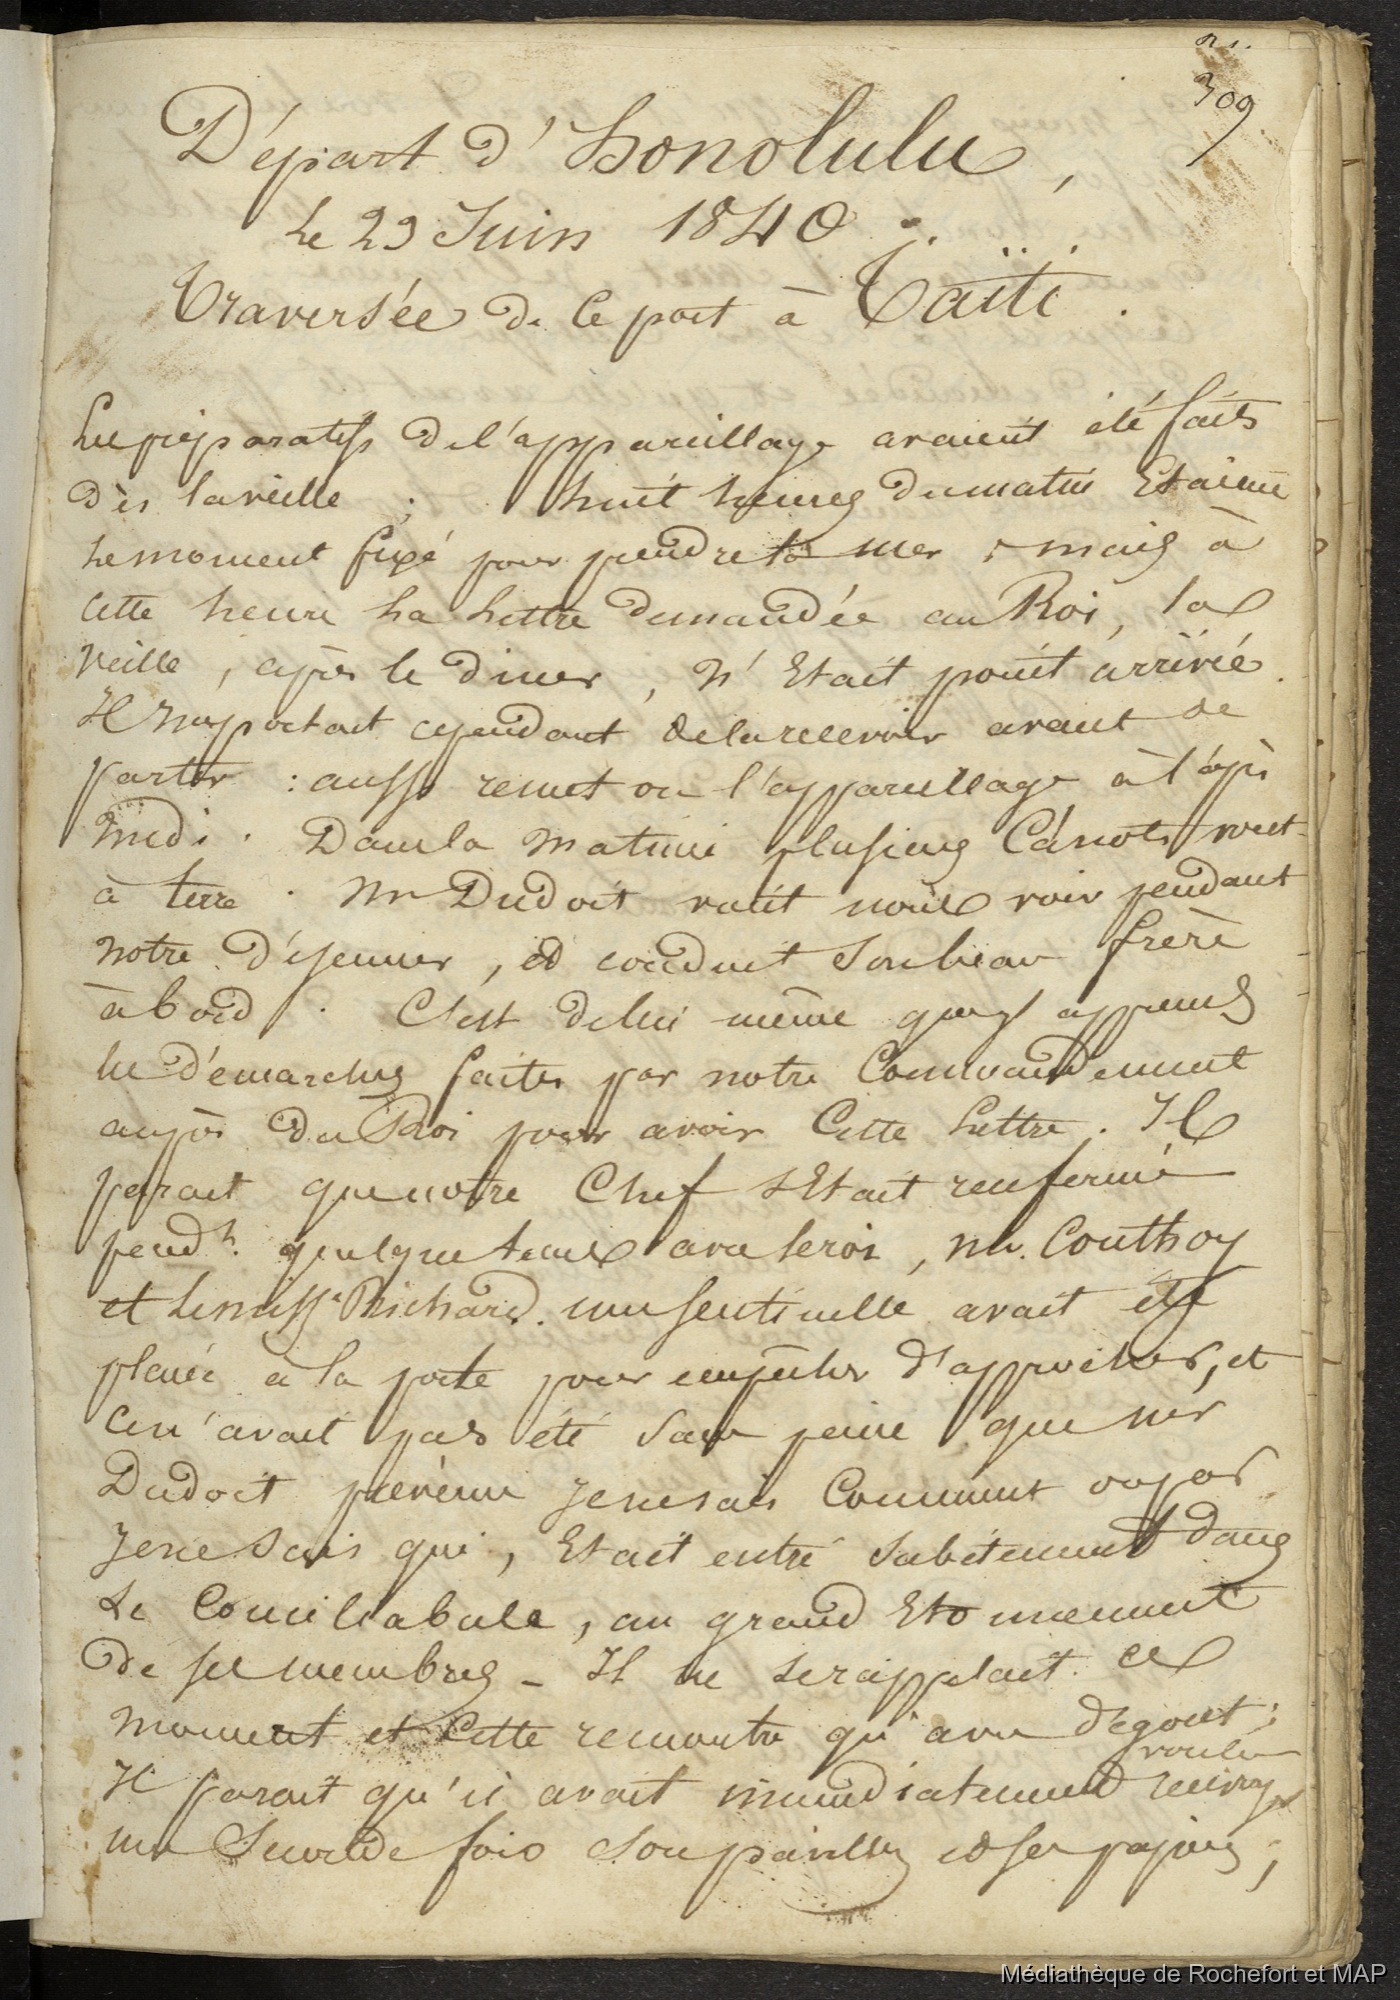 n 1.
309
Départ d'honolulu,
Le 29 Juin 1840 :
Traversée de ce port à Taïti.
Les préparatifs de l'appareillage avaient été faits
dès la veille ; huit heures du matin Etaient
le moment fixé pour prendre la mer ; mais à
cette heure la lettre demandée au Roi, la
veille, après le diner, n'Etait point arrivée.
Il importait cependant de la recevoir avant de
partir : aussi remet on l'appareillage à l'après
midi. Dans la matinée plusieurs Canots vont
à terre. Mr Dudoit vint nous voir pendant
notre déjeuner, et conduit son beau frère
à bord. C'est de lui même que j'appends
les démarches faites par notre Commandement
auprès du Roi pour avoir Cette Lettre. Il
parait que notre Chef s'Etait renfermé
pend.t quelque tems avec le roi, Mr. Couthoy
et le miss.e Richard. une sentinelle avait été
placée à la porte pour empêcher d'approcher, et
ce n'avait pas été sans peine que mr
Dudoit prévenu je ne sais Comment ou par
je ne sais qui, Etait entré subitement dans
Le Conciliabule, au grand Etonnement
de ses membres - Il ne se rappelait ce
moment et Cette rencontre qu'avec dégout ;
voulu
Il parait qu'il avait immédiatement
une seconde fois et ses papiers ;
Médiathèque de Rochefort et MAP